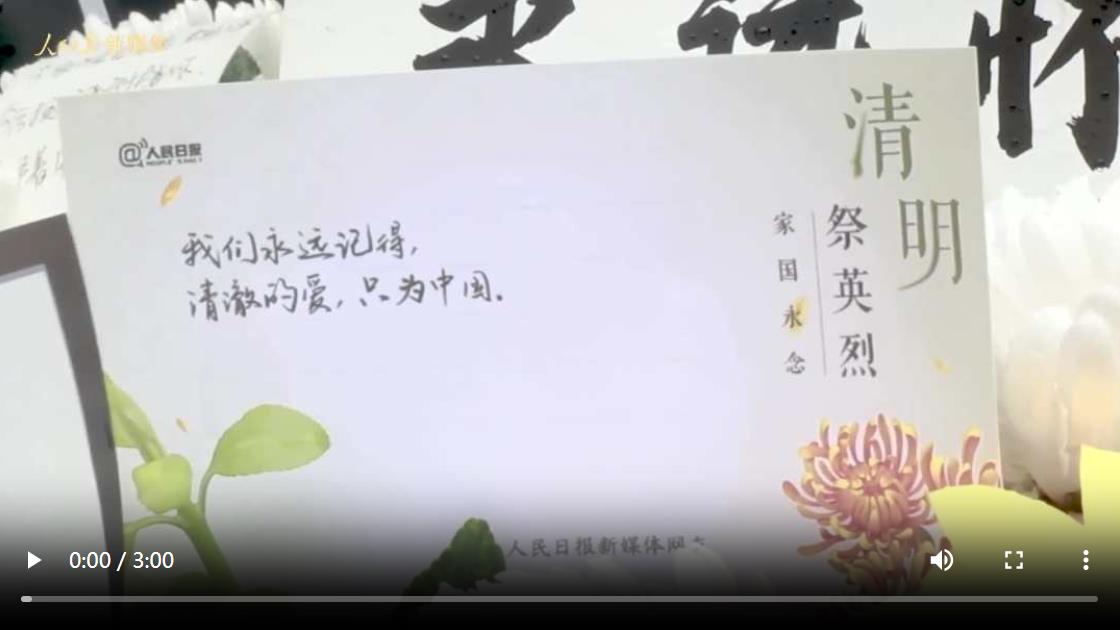 人民日报
@人民日报
PEOPLE'S DAILY
我们永远记得,
清澈的爱,只为中国.
清明
祭英烈
家国永念
人民日报新媒体网友
0:00 / 3:00